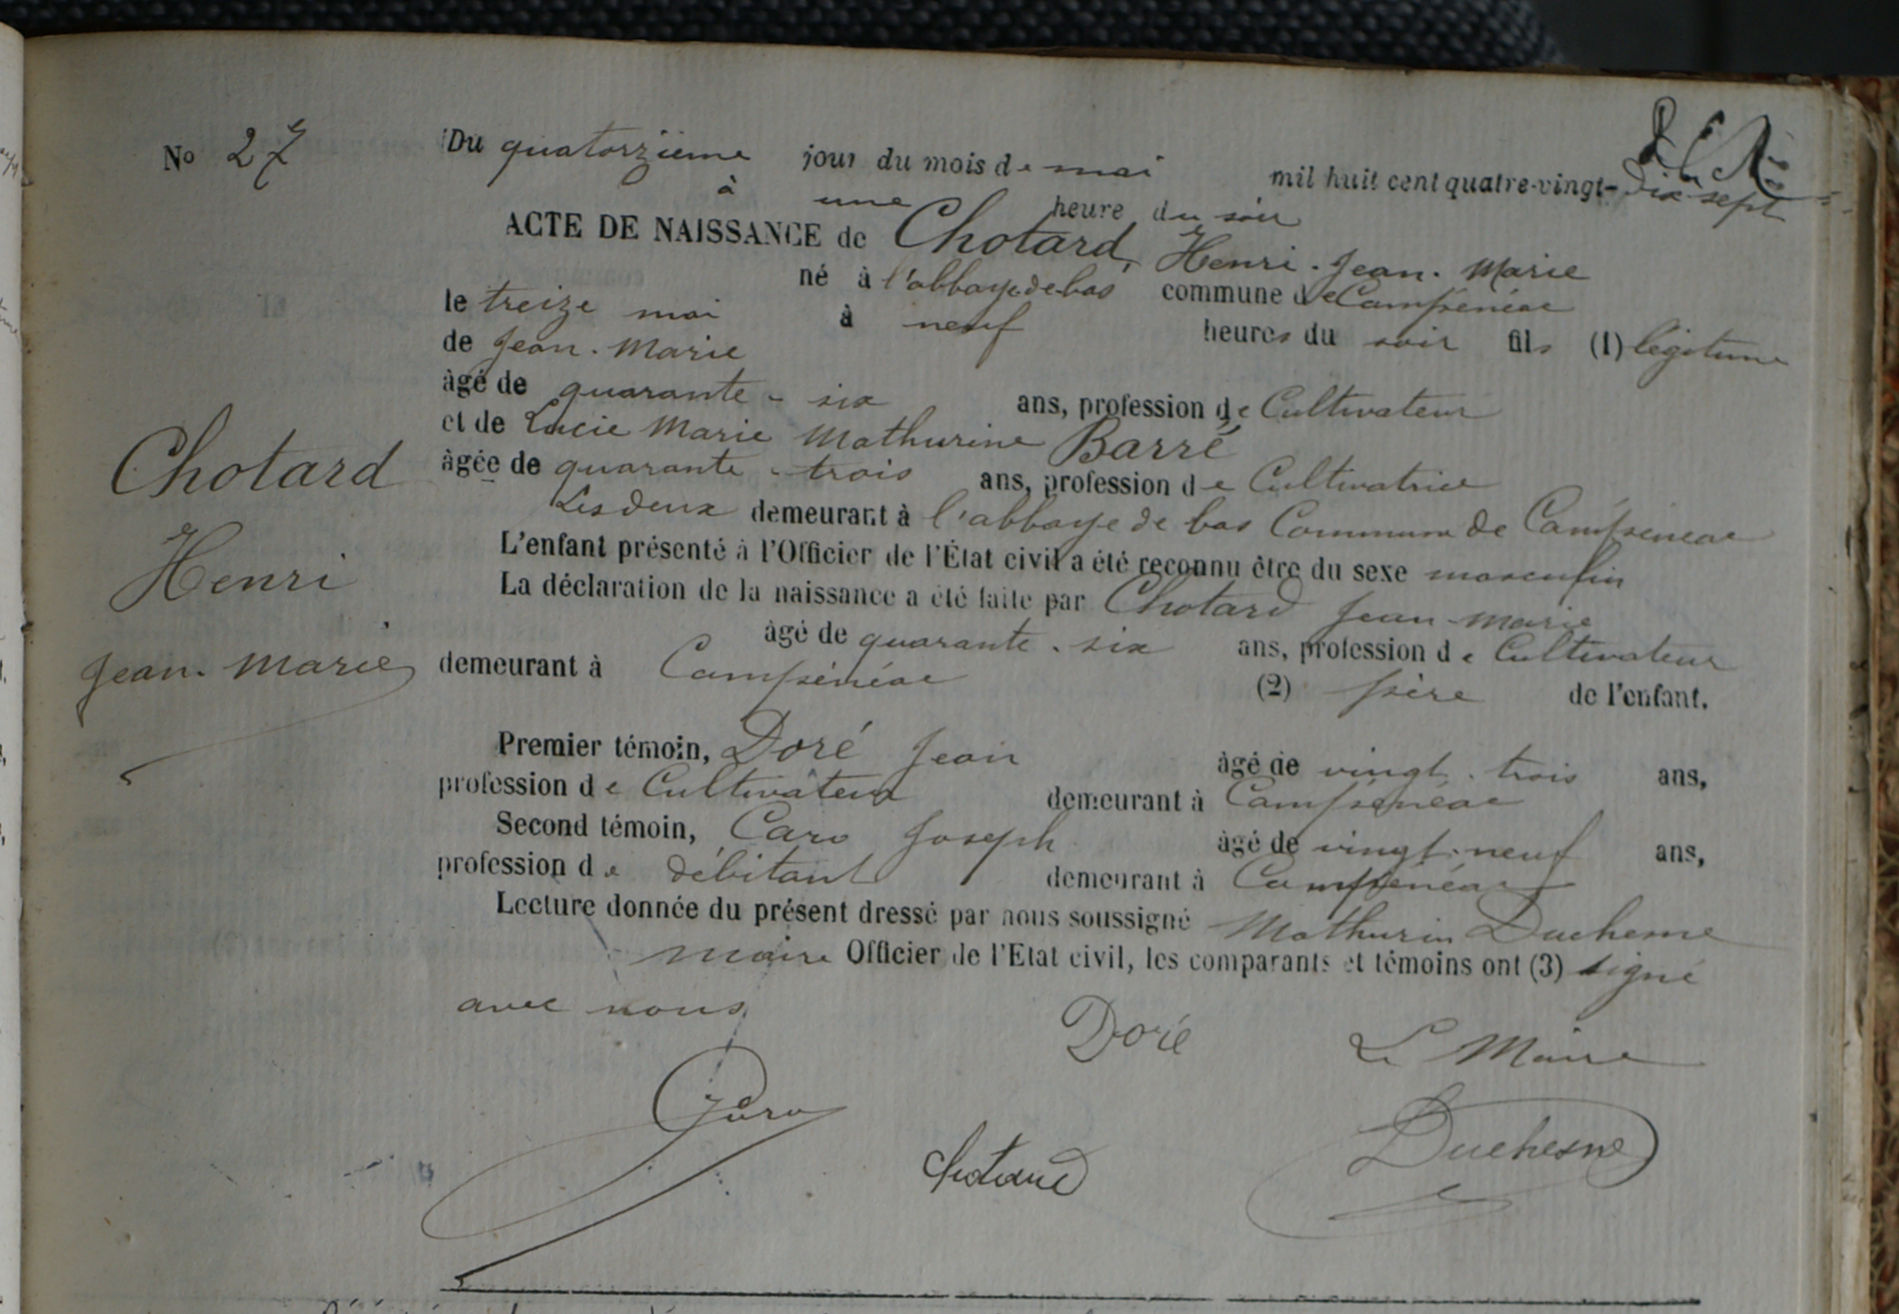 No 27
Du quatorzième jour du mois de mai mil huit cent quatre-vingt-dix-sept
à une heure du soir
ACTE DE NAISSANCE de Chotard, Henri. Jean. Marie
né à l'abbaye de bas commune de Campénéac
le treize mai à neuf heures du soir fils (1) légitime
de Jean. Marie
âgé de quarante-six ans, profession de Cultivateur
et de Lucie Marie Mathurine Barré
âgée de quarante-trois ans, profession de Cultivatrice
Les deux demeurant à l'abbaye de bas Commune de Campénéac
L'enfant présenté à l'Officier de l'État civil a été reconnu être du sexe masculin
La déclaration de la naissance a été faite par Chotard Jean-Marie
âgé de quarante-six ans, profession de Cultivateur
demeurant à Campénéac (2) père de l'enfant.
Premier témoin, Doré Jean âgé de vingt-trois ans,
profession de Cultivateur demeurant à Campénéac
Second témoin, Caro Joseph âgé de vingt-neuf ans,
profession de débitant demeurant à Campénéac
Lecture donnée du présent dressé par nous soussigné Mathurin Duchesne
maire Officier de l'Etat civil, les comparants et témoins ont (3) signé
avec nous
Chotard
Henri
Jean. Marie
Doré Le Maire
Caro
Chotard
Duchesne